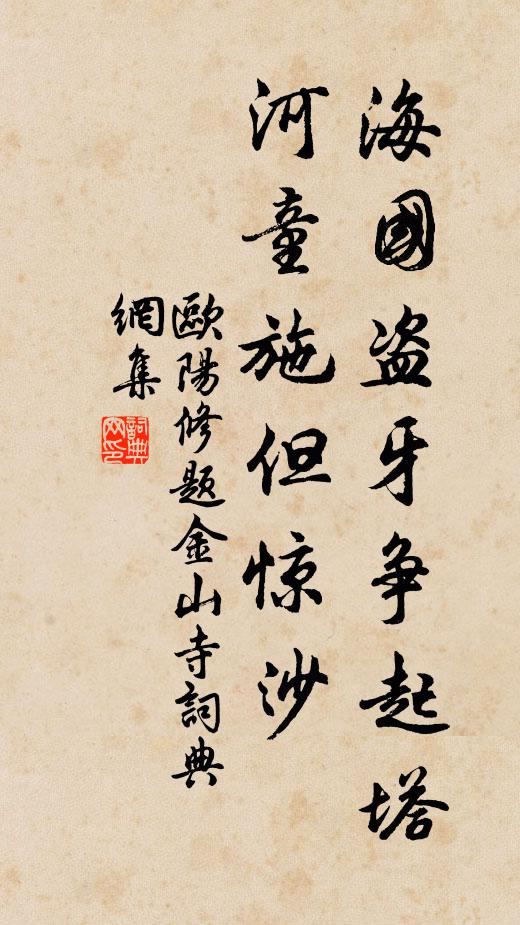 海國盗牙争起塔
河童施但惊沙
歐陽修题金山寺詞典
網集
詞典
网印